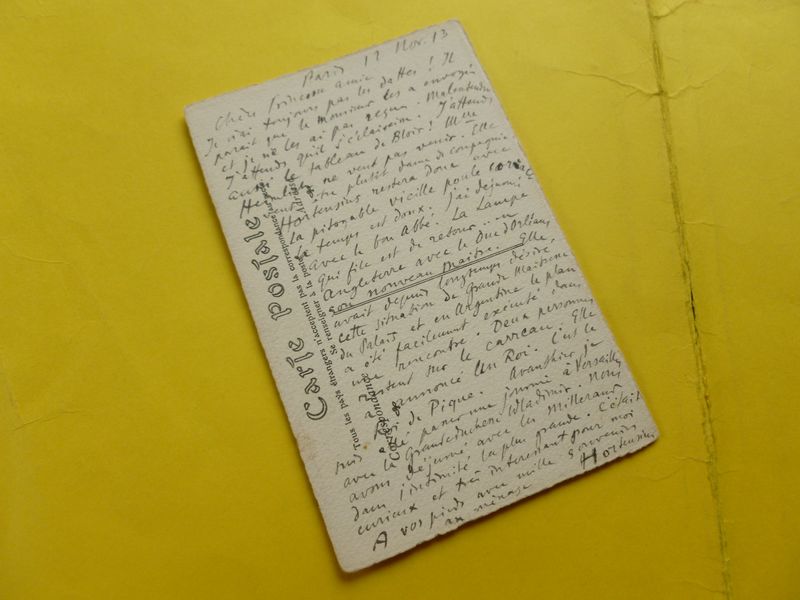 Paris 17 Nov. 13
Chère Princesse amie
Je n'ai toujours pas les dattes! Il
parait que le monsieur les a envoyés
et je ne les ai pas reçus. Malentendu
J'attends qu'il s'éclaircisse. J'attends
aussi le tableau de Blois! Mme
ne veut pas venir. Elle
veut être plutôt dame de compagnie
Hortensius restera donc avec
la pitoyable vieille poule
Le temps est doux. J'ai déjeuné
avec le bon Abbé. La Lampe
qui file est de retour
Angleterre avec le Duc d'Orléans
son nouveau maitre. Elle
avait depuis longtemps désiré
cette situation de Grande Maitresse
du Palais et en Argentine le plan
a été facilement exécuté dans
une rencontre. Deux personnes
restent sur le carreau. Elle
a annoncé Un Roi. C'est le
de Pique. Avanthier je
suis allé passer une journée à Versailles
avec la Grandeduchesse Wladimir. Nous
avons déjeuné avec les Millerand
dans l'intimité la plus grande. C'était
curieux et très interessant pour moi
A vos pieds avec mille souvenirs
au ménage
Hortensius
Carte postale
Tous les pays étrangers n'acceptent pas la correspondance au recto
Se renseigner à la Poste
Correspondance
Adresse